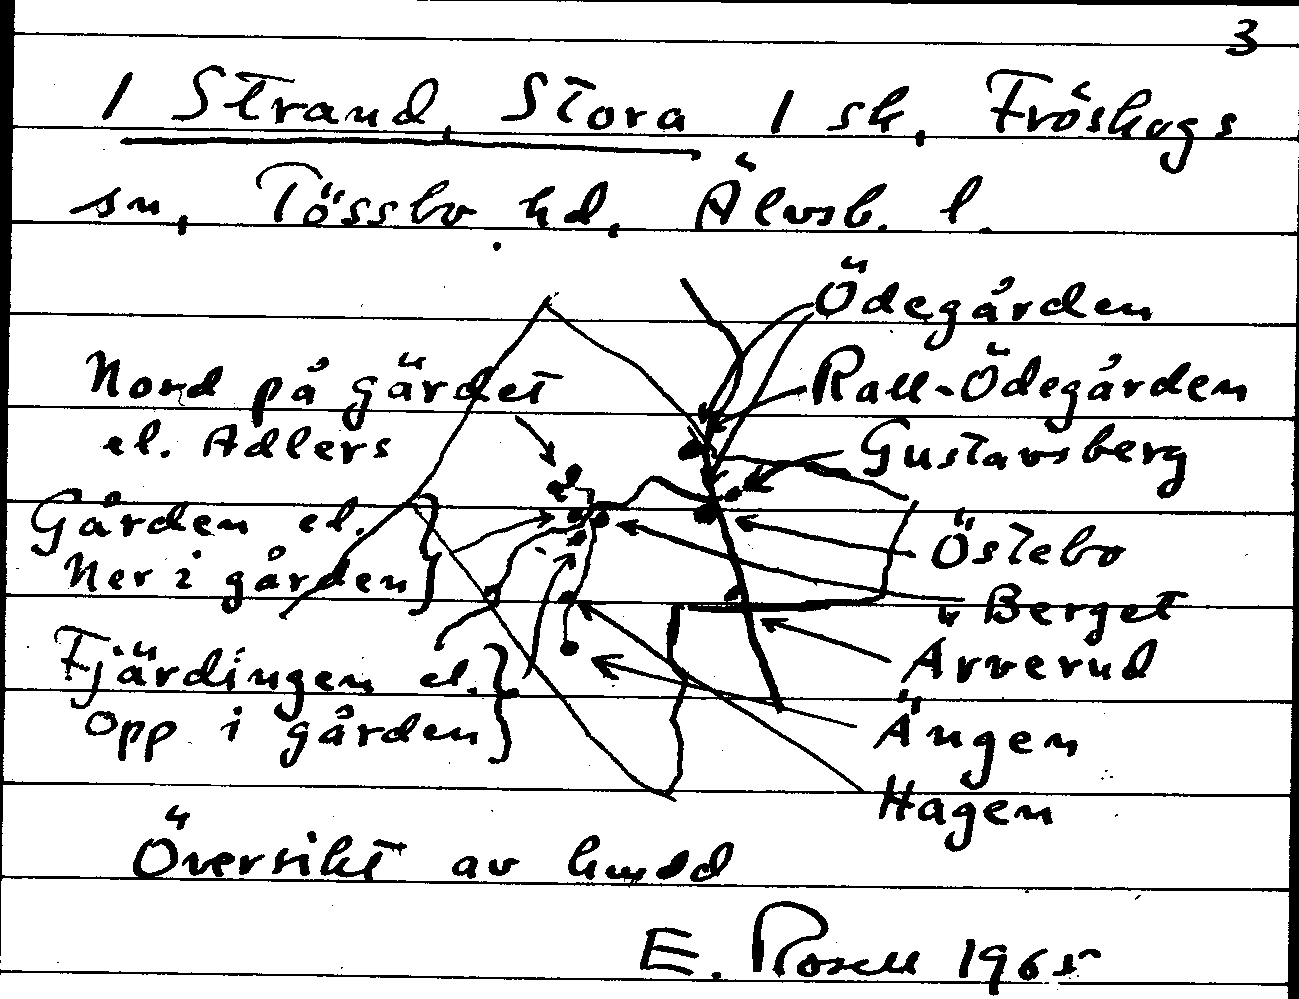 3
1 Strand, Stora 1 sk, Fröskogs
sn, Tössbo hd, Älvsb. l.
Ödegården
Nord på gärdet
el. Adlers
Rall-Ödegården
Gustavsberg
Gården el.
Ner i gården
Östebo
Berget
Fjärdingen el.
Opp i gården
Arverud
Ängen
Hagen
Översikt av
E. Rosell 1965